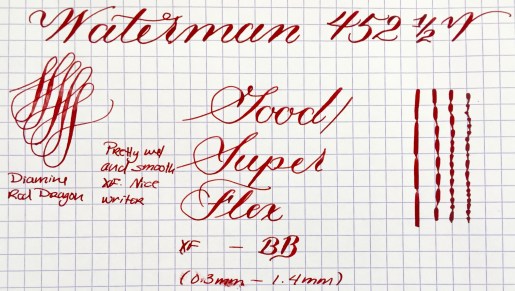 Waterman 452 1/2 V
Good/
Super
Flex
Pretty wet
and smooth
XF. Nice
writer
Diamine
Red Dragon
XF - BB
(0.3mm - 1.4mm)